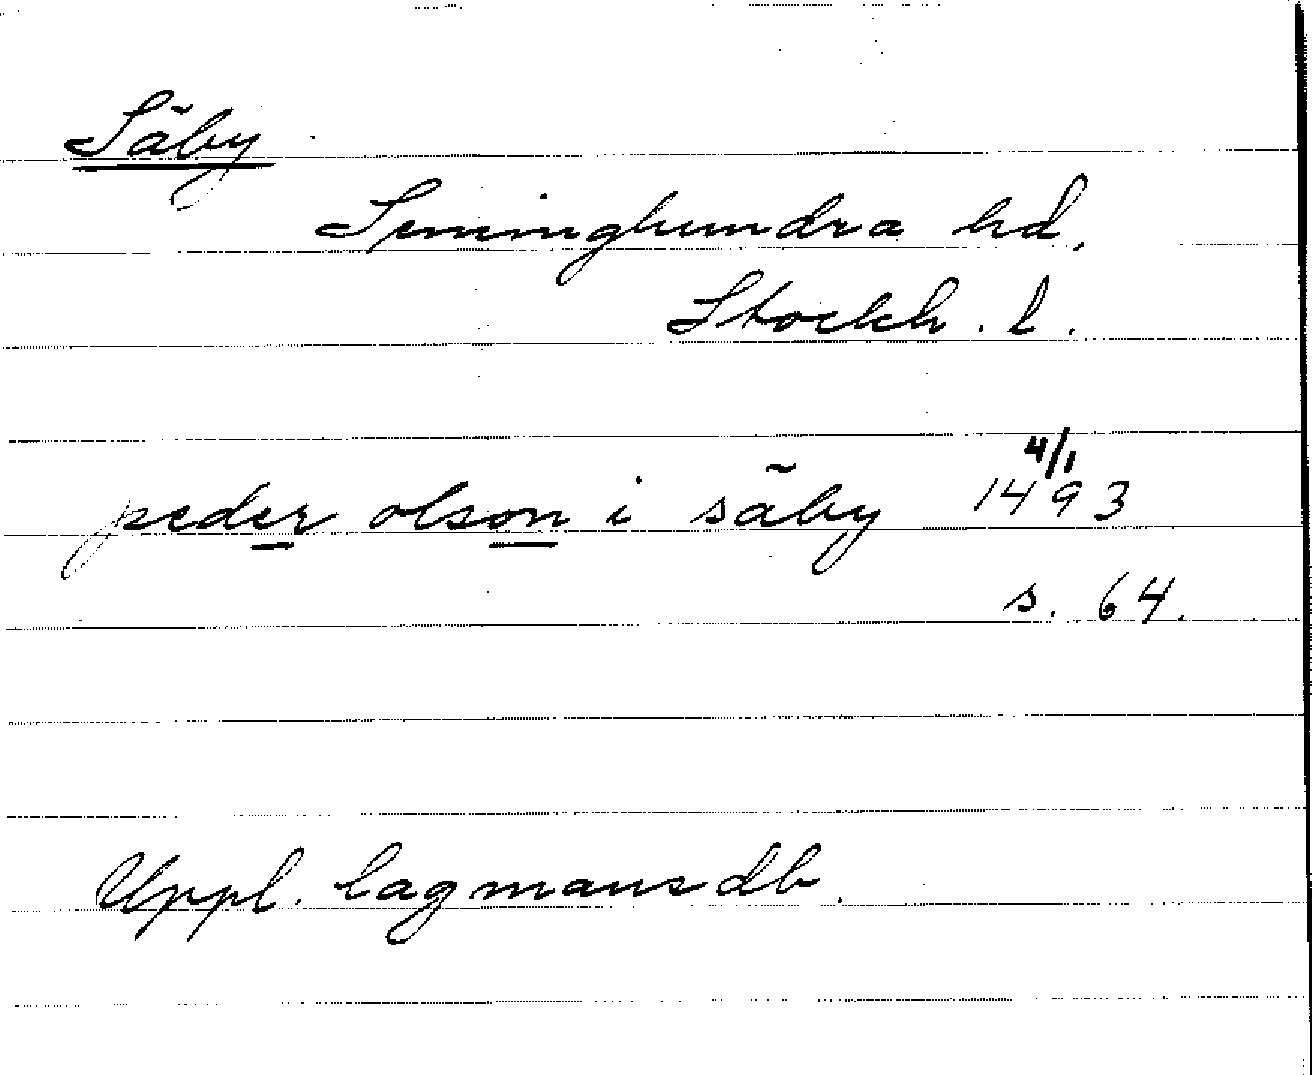 Säby
Seminghundra hd.
Stockh. l.
4/1
peder olson i säby 1493
s. 64.
Uppl. lagmansdb.